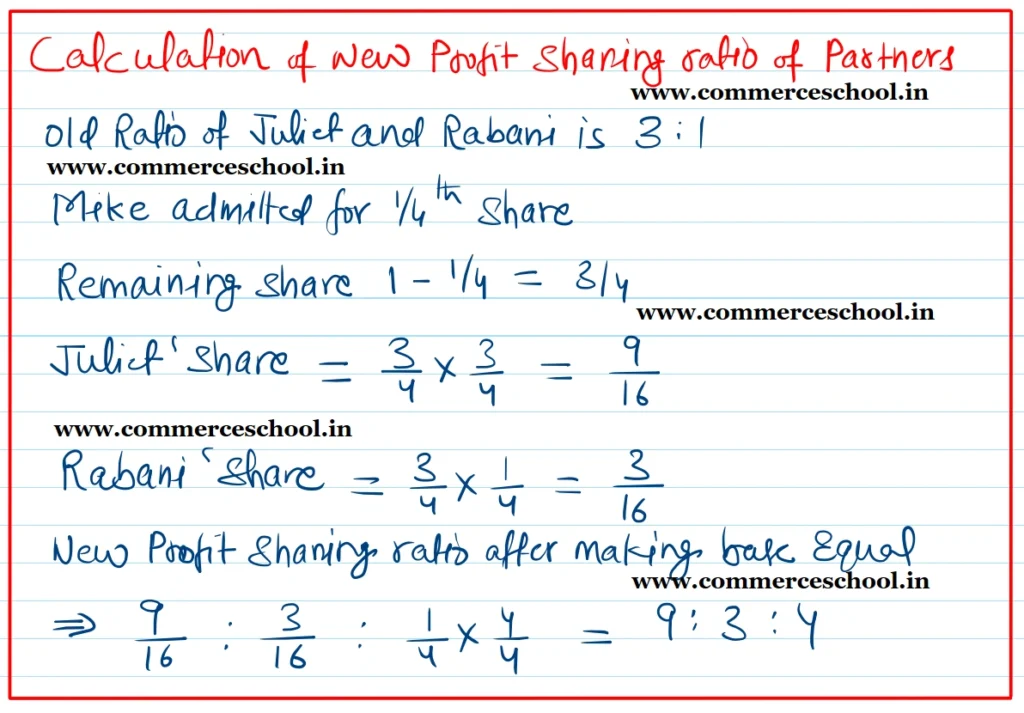 Calculation of New Profit Sharing ratio of Partners
www.commerceschool.in
Old Ratio of Juliet and Rabani is 3 : 1
www.commerceschool.in
Mike admitted for 1/4th Share
Remaining share 1 - 1/4 = 3/4
www.commerceschool.in
Juliet' Share = 3/4 × 3/4 = 9/16
www.commerceschool.in
Rabani' Share = 3/4 × 1/4 = 3/16
New Profit Sharing ratio after making base Equal
www.commerceschool.in
⇒ 9/16 : 3/16 : 1/4 × 4/4 = 9 : 3 : 4